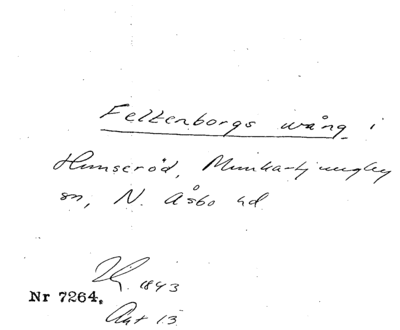 Feltenborgs wång i
Hunseröd, Munka-Ljungby
sn, N. Åsbo hd
1843
Nr 7264.
Akt 13